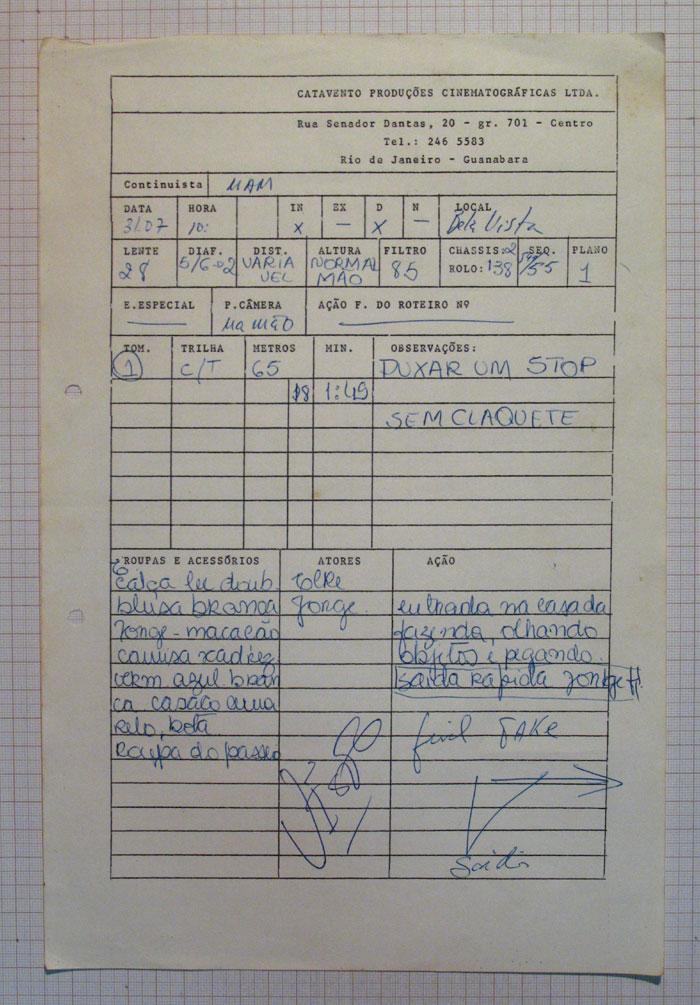 CATAVENTO PRODUÇÕES CINEMATOGRÁFICAS LTDA.
Rua Senador Dantas, 20 - gr. 701 - Centro
Tel.: 246 5583
Rio de Janeiro - Guanabara
Continuista MAM
DATA HORA IN EX D N LOCAL
31.07 10: X — X — Bela Vista
LENTE DIAF. DIST. ALTURA FILTRO CHASSIS: 2 SEQ. PLANO
28 5/6 VARIA NORMAL 85 ROLO: 138 55 1
VEL MÃO
E.ESPECIAL P.CÂMERA AÇÃO F. DO ROTEIRO Nº
na mão
TOM. TRILHA METROS MIN. OBSERVAÇÕES:
1 C/T 65 PUXAR UM STOP
18 1:49
SEM CLAQUETE
ROUPAS E ACESSÓRIOS ATORES AÇÃO
calça
blusa branca Jorge. entrada na casa da
Jorge - macacão fazenda, olhando
camisa xadrez objetos e pegando.
verm azul bran saída rápida Jorge
ca casaco ama
relo, bota
final TAKE
Roupa do passeio
Saída